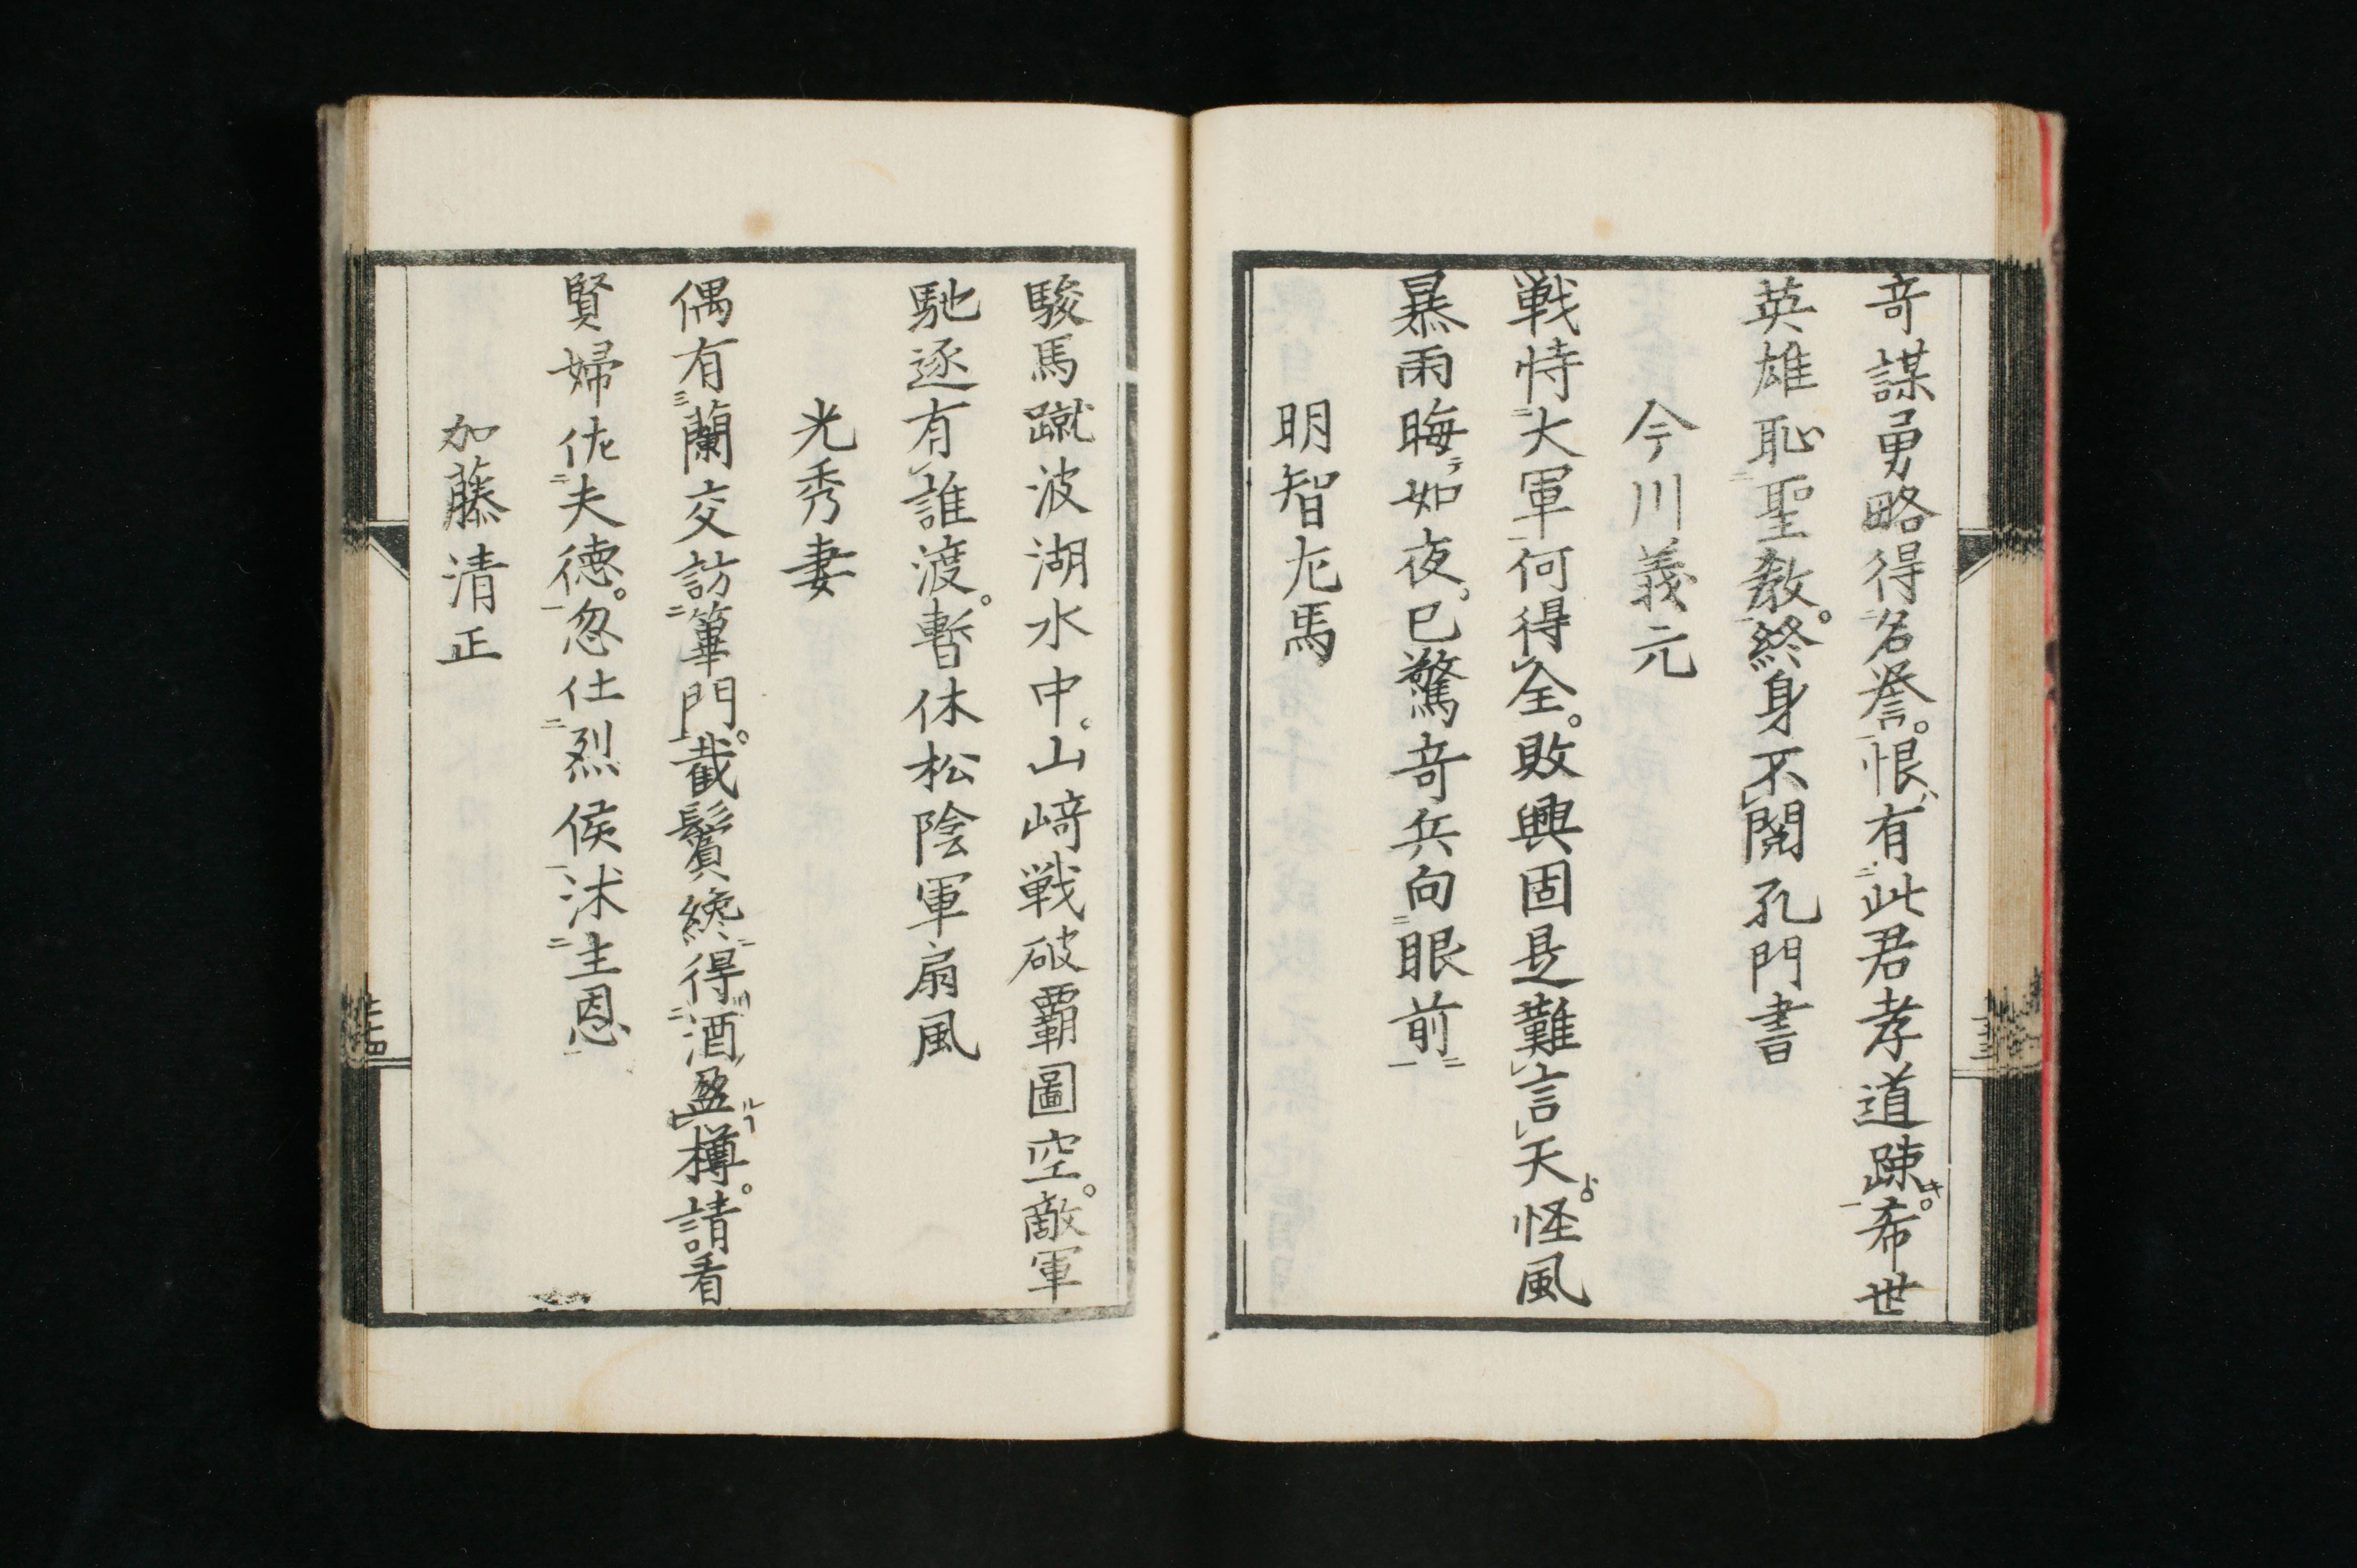 竒謀勇略得名誉。恨有此君孝道踈。希世
英雄恥聖教。終身不閲孔門書
今川義元
戦恃大軍何得全。敗興固是難言天。怪風
暴雨晦如夜。已驚竒兵向眼前
明智左馬
駿馬蹴波湖水中。山﨑戦破覇圖空。敵軍
馳逐有誰渡。暫休松陰軍扇風
光秀妻
偶有蘭交訪篳門。截鬢纔得酒盈樽。請看
賢婦佐夫德。忽仕烈侯沭主恩
加藤清正